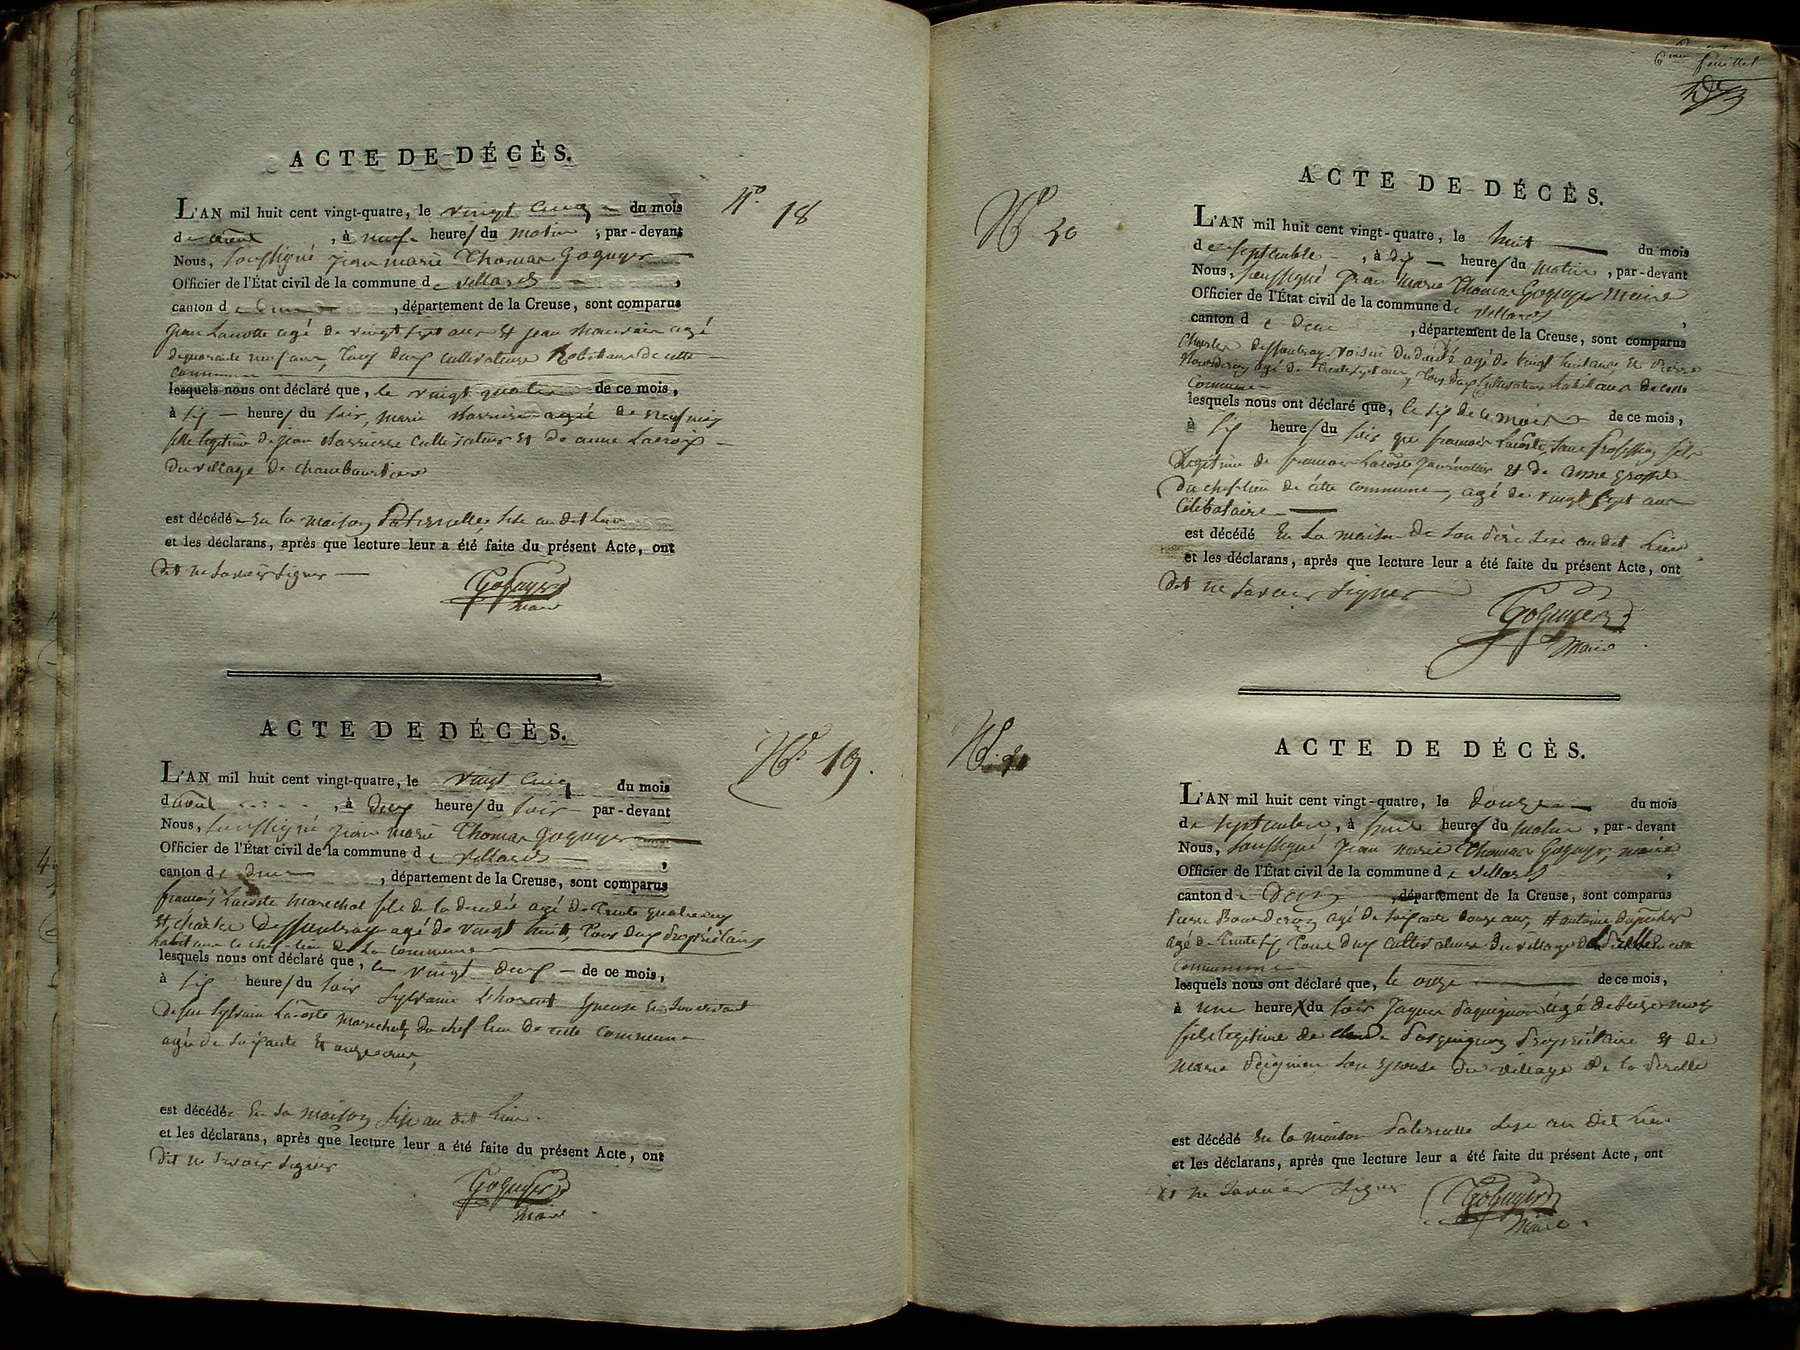 ACTE DE DÉCÈS.
N.º 18
L'AN mil huit cent vingt-quatre, le vingt cinq du mois
d'août, à neuf heures du matin, par-devant
Nous, soussigné jean marie Thomas Goguyer
Officier de l'État civil de la commune de villards,
canton de Dun, département de la Creuse, sont comparus
jean Lamotte agé de vingt sept ans et jean agé
de quarante neuf ans, tous deux cultivateurs habitans de cette
commune
lesquels nous ont déclaré que, le vingt quatre de ce mois,
à six heures du soir, marie agée de neuf mois
fille legitime de jean cultivateur et de anne Lacroix
du village de
est décédée en la maison paternelle sise au dit lieu
et les déclarans, après que lecture leur a été faite du présent Acte, ont
dit ne savoir signer
Goguyer
Maire
ACTE DE DÉCÈS.
Nº 19.
L'AN mil huit cent vingt-quatre, le vingt cinq du mois
d'août, à deux heures du soir par-devant
Nous, soussigné jean marie Thomas Goguyer
Officier de l'État civil de la commune de villards,
canton de Dun, département de la Creuse, sont comparus
françois Lacoste marechal fils de la décédée agé de trente quatre ans
et charles Dessautray agé de vingt huit, tous deux propriétaires
habitans le chef-lieu de la commune
lesquels nous ont déclaré que, le vingt deux de ce mois,
à six heures du soir Sylvaine épouse en son vivant
de feu Sylvain Lacoste marechal du chef lieu de cette commune
agée de soixante et onze ans,
est décédée en sa maison sise au dit lieu.
et les déclarans, après que lecture leur a été faite du présent Acte, ont
dit ne savoir signer
Goguyer
Maire
6eme feuillet
ACTE DE DÉCÈS.
Nº 20
L'AN mil huit cent vingt-quatre, le huit du mois
de septembre, à dix heures du matin, par-devant
Nous, soussigné jean Marie Thomas Goguyer Maire
Officier de l'État civil de la commune de villards,
canton de Dun, département de la Creuse, sont comparus
Charles dessautray voisin du décédé agé de vingt huit ans et Pierre
agé de trente sept ans, tous deux cultivateurs habitans de cette
Commune
lesquels nous ont déclaré que, le six de ce mois de ce mois,
à six heures du soir que françois Lacoste, sans profession fils
legitime de françois Lacoste journalier et de anne
du chef-lieu de cette commune, agé de vingt sept ans
Célibataire
est décédé en la maison de son père sise au dit Lieu
et les déclarans, après que lecture leur a été faite du présent Acte, ont
dit ne savoir signer
Goguyer
Maire
ACTE DE DÉCÈS.
Nº 21
L'AN mil huit cent vingt-quatre, le douze du mois
de septembre, à huit heures du matin, par-devant
Nous, soussigné jean marie Thomas Goguyer, maire
Officier de l'État civil de la commune de villards,
canton de Dun, département de la Creuse, sont comparus
Pierre agé de soixante douze ans, et antoine
agé de trente six tous deux cultivateurs du village de
Commune
lesquels nous ont déclaré que, le onze de ce mois,
à une heure du soir Jaques Pasquignon agé de seize mois
fils legitime de Pasquignon propriétaire et de
marie son epouse du village de la
est décédé en la maison paternelle sise au dit lieu
et les déclarans, après que lecture leur a été faite du présent Acte, ont
dit ne savoir signer
Goguyer
Maire.